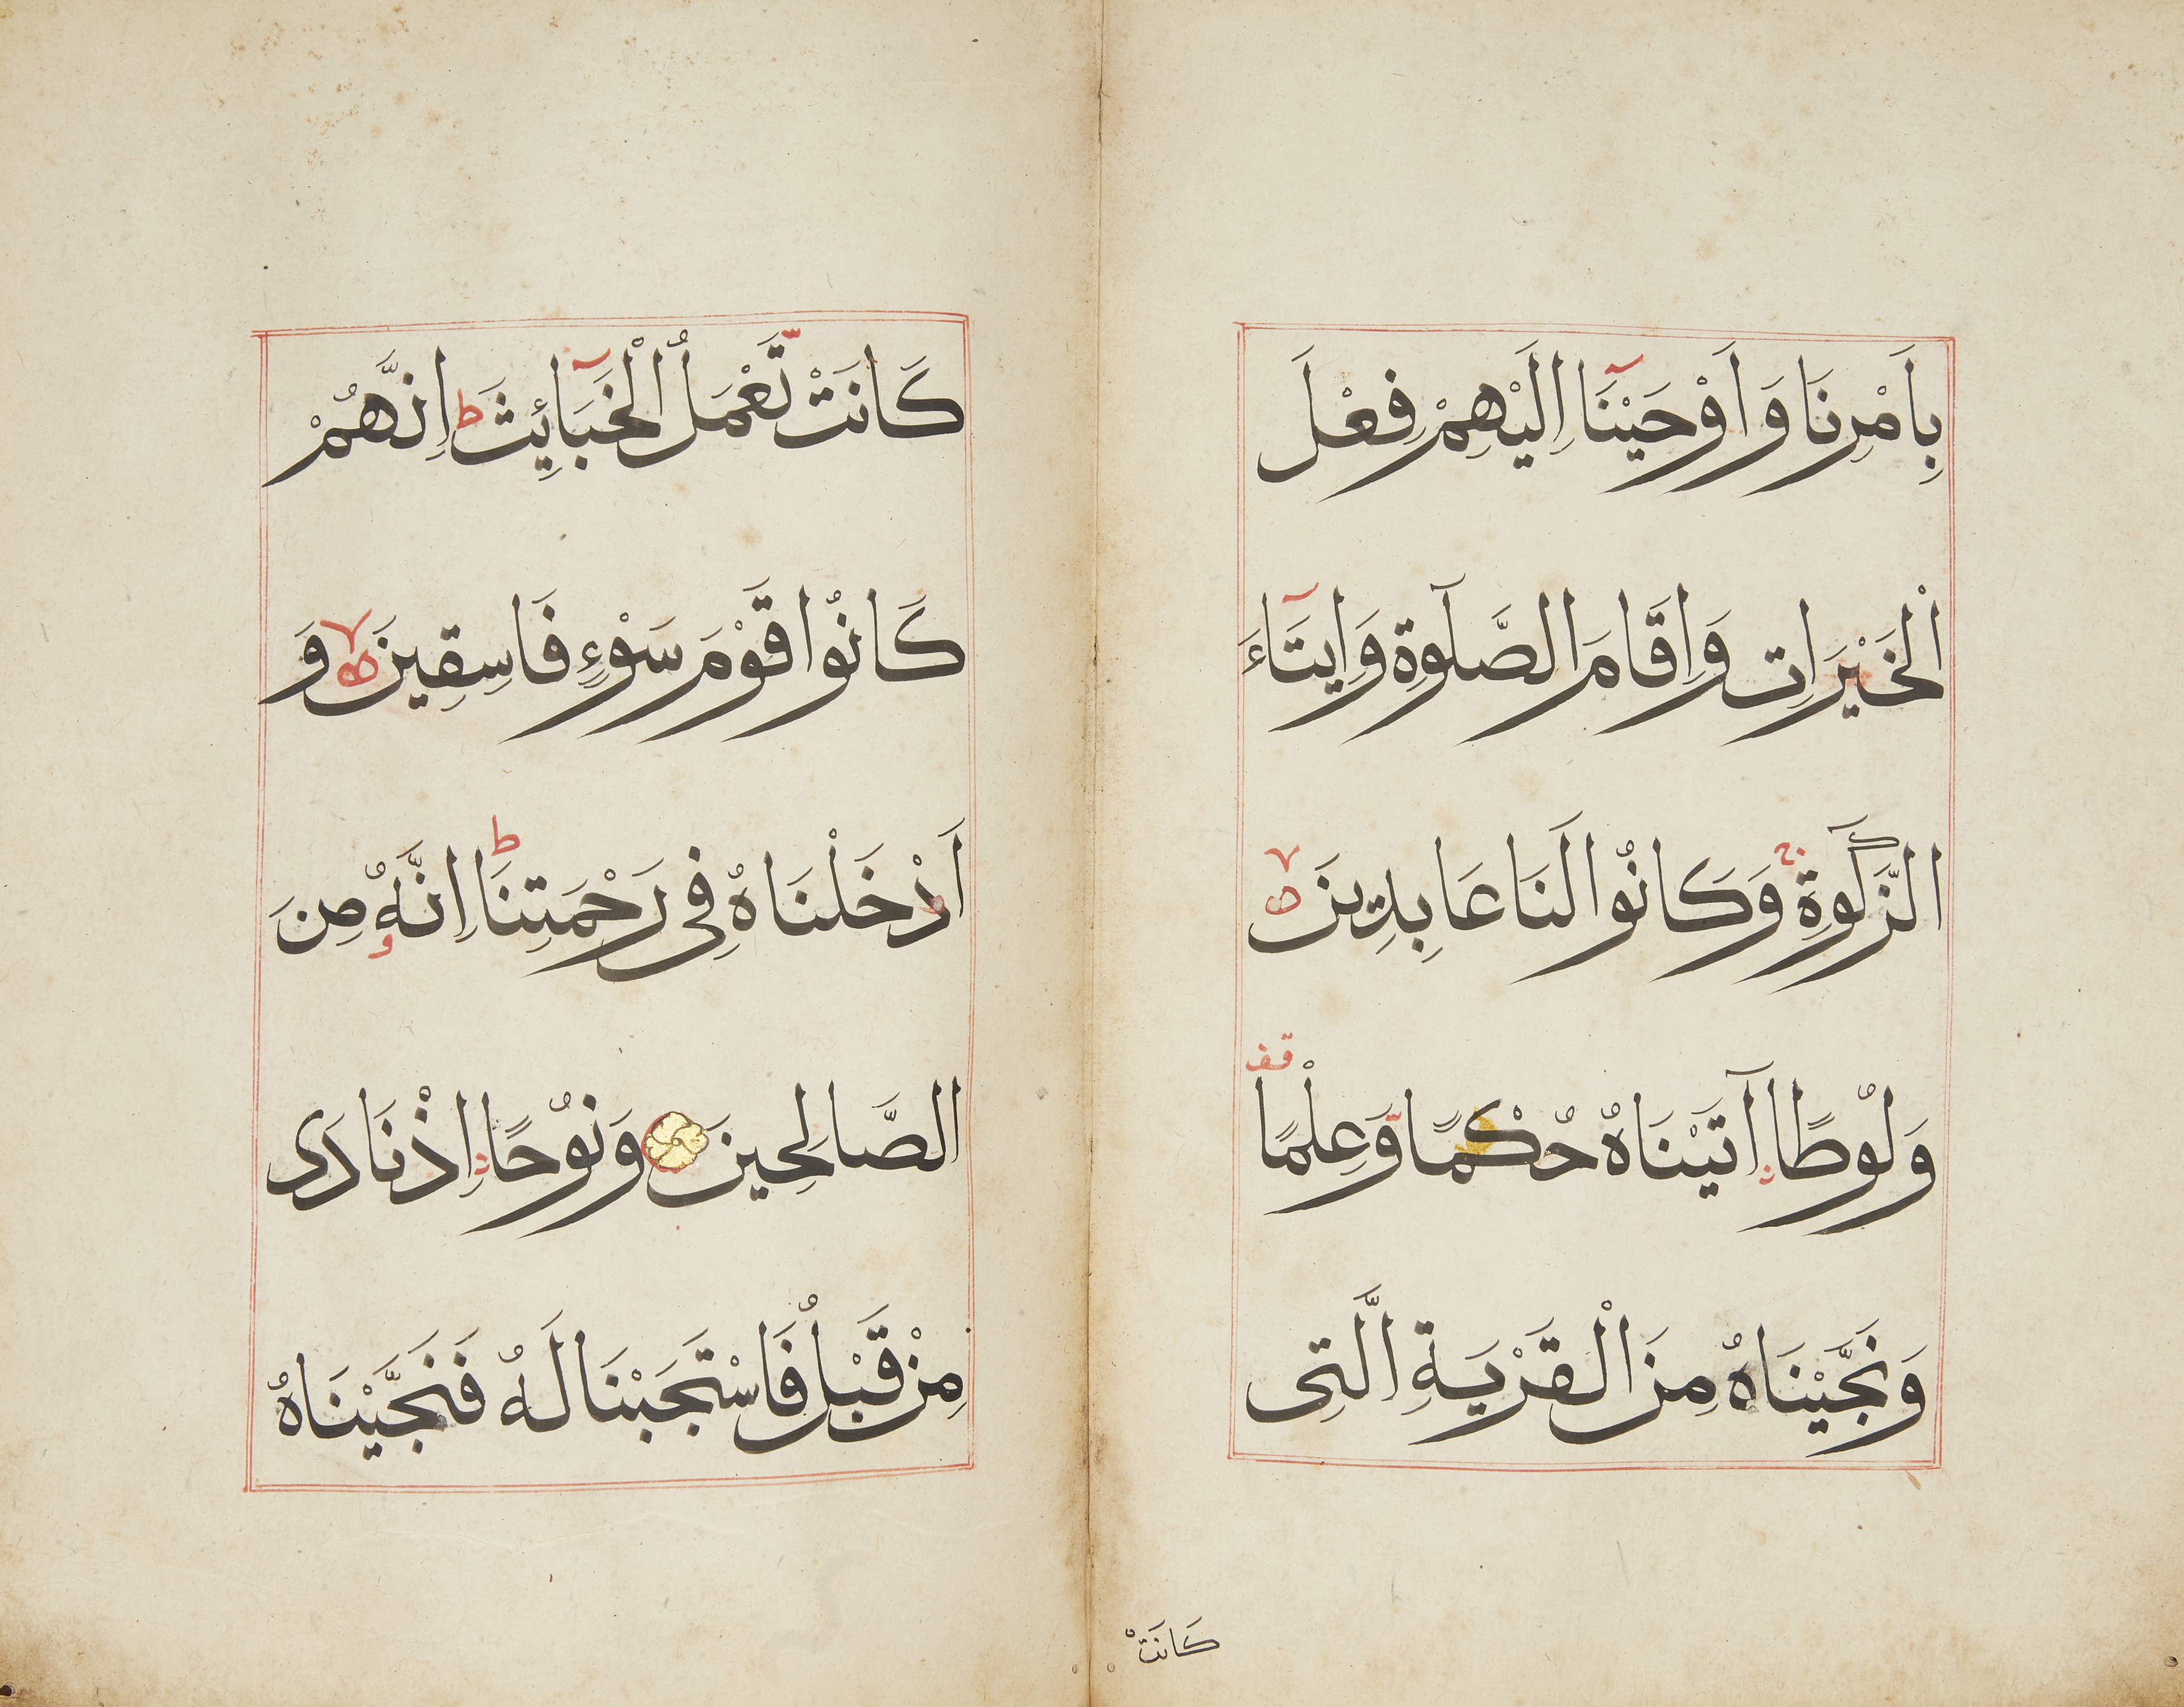 بِاَمْرِنَا وَاَوْحَيْنَا اِلَيْهِمْ فِعْلَ
الْخَيْرَاتِ وَاِقَامَ الصَّلٰوةِ وَاِيتَاءَ
الزَّكٰوةِ وَكَانُوا لَنَا عَابِدِينَ
وَلُوطًا آتَيْنَاهُ حُكْمًا وَّعِلْمًا قف
وَنَجَّيْنَاهُ مِنَ الْقَرْيَةِ الَّتِى
كَانَتْ
كَانَتْ تَّعْمَلُ الْخَبَائِثَ ط اِنَّهُمْ
كَانُوا قَوْمَ سَوْءٍ فَاسِقِينَ لا وَ
اَدْخَلْنَاهُ فِى رَحْمَتِنَا ط اِنَّهُ مِنَ
الصَّالِحِينَ وَنُوْحًا اِذْ نَادَى
مِنْ قَبْلُ فَاسْتَجَبْنَا لَهُ فَنَجَّيْنَاهُ